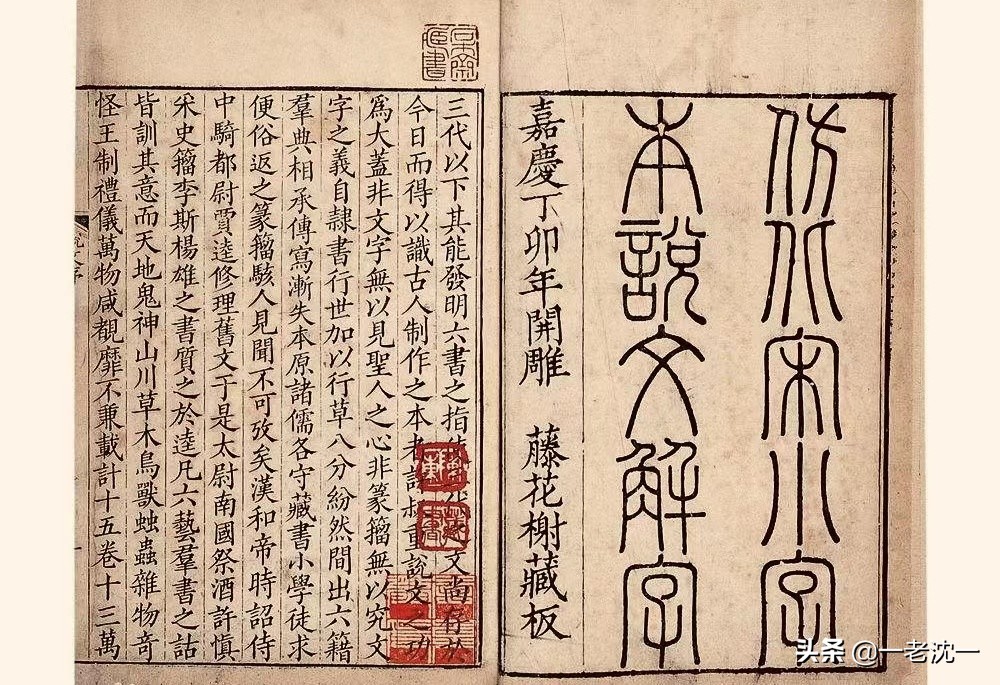 仿北宋小字
本說文解字
嘉慶丁卯年開雕　藤花榭藏板
三代以下其能發明六書之指 文尚存於
今日而得以識古人制作之本者許叔重說文之功
爲大蓋非文字無以見聖人之心非篆籀無以究文
字之義自隸書行世加以行草八分紛然間出六籍
羣典相承傳寫漸失本原諸儒各守藏書小學徒求
便俗返之篆籀駭人見聞不可攷矣漢和帝時詔侍
中騎都尉賈逵修理舊文于是太尉南國祭酒許慎
采史籀李斯楊雄之書質之於逵凡六藝羣書之詁
皆訓其意而天地鬼神山川草木鳥獸䖵蟲雜物奇
怪王制禮儀萬物咸覩靡不兼載計十五卷十三萬
头条 @一老沈一